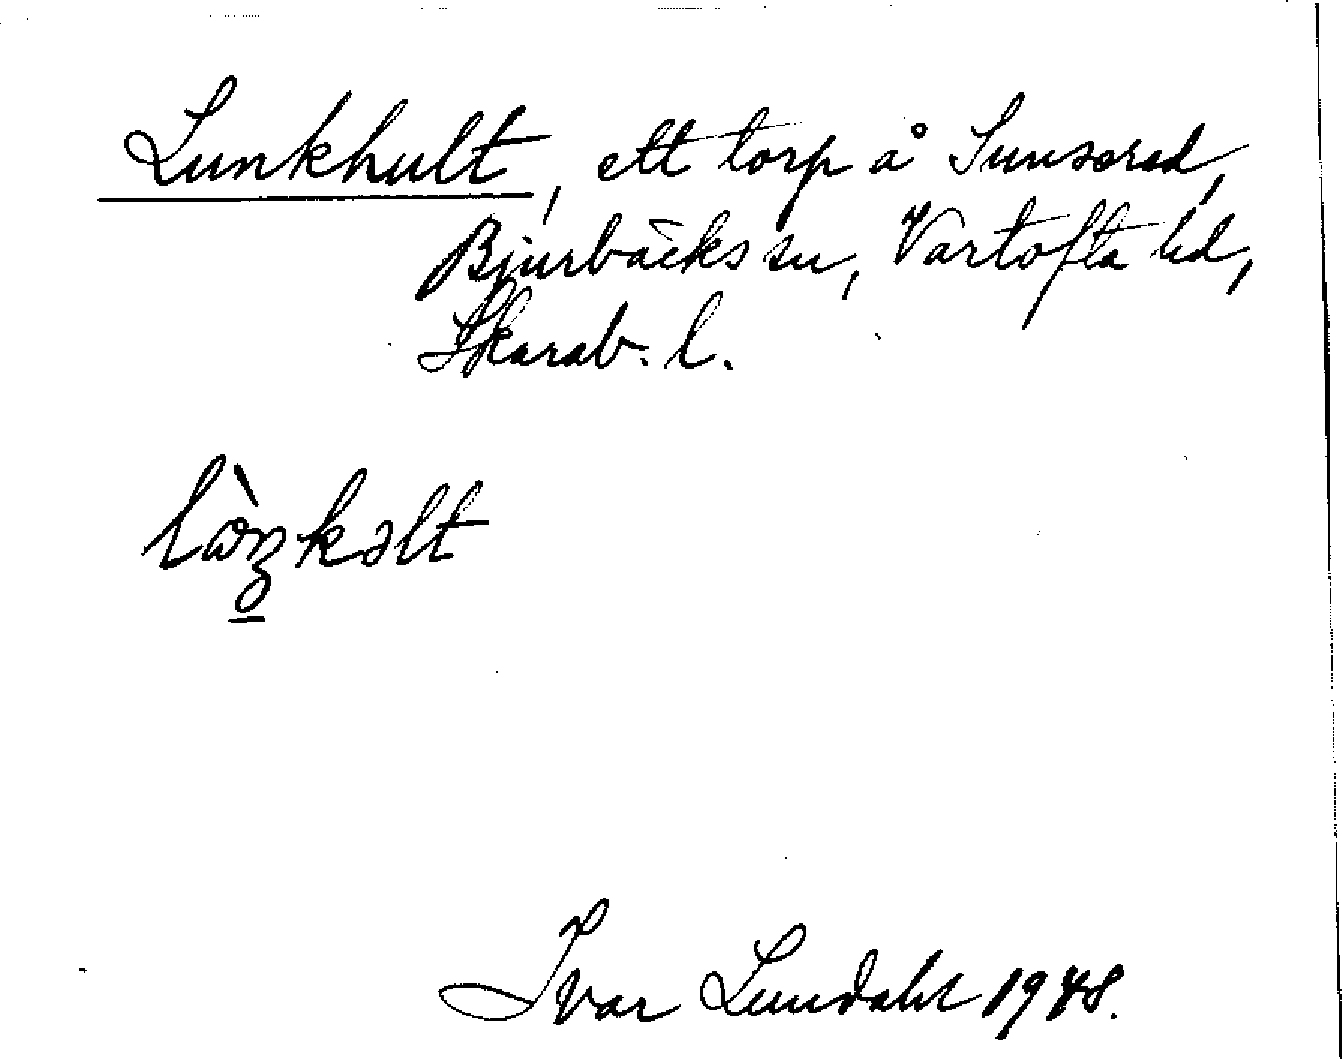 Lunkhult, ett torp å Sunserud,
Bjurbäcks sn, Vartofta hd,
Skarab. l.
Ivar Lundahl 1948.